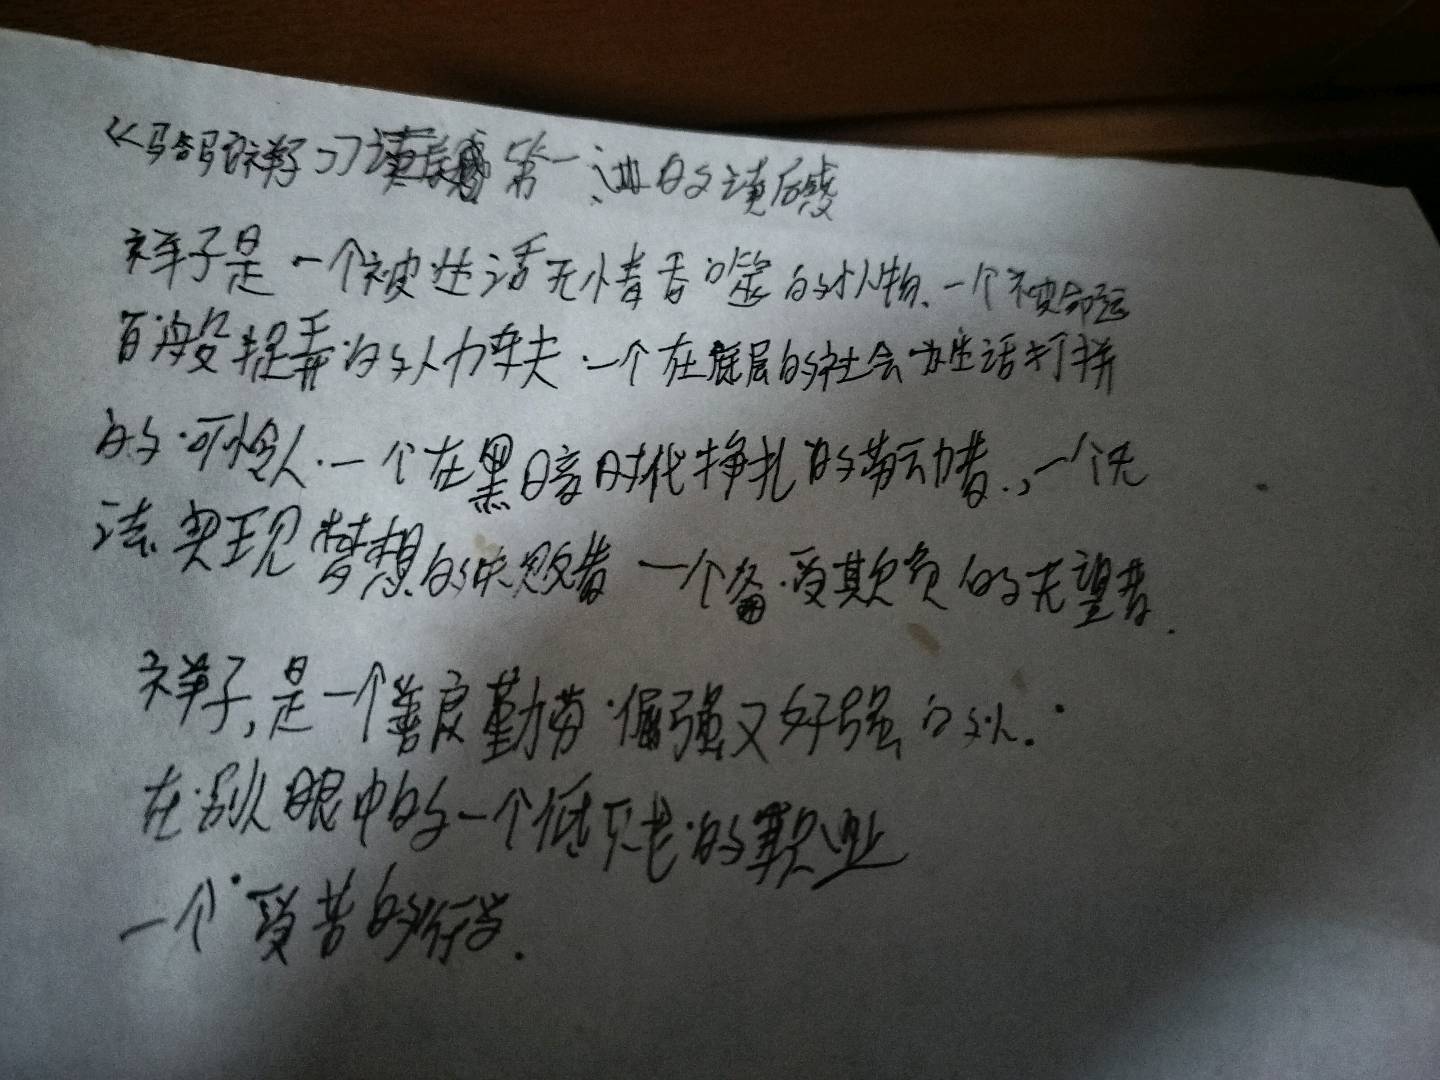 《骆驼祥子》第一遍的读后感
祥子是一个被生活无情吞噬的小人物、一个被命运
百般捉弄的人力车夫 一个在底层的社会为生活打拼
的可怜人.一个在黑暗时代挣扎的劳动者.,一个无
法实现梦想的失败者 一个备受欺负的无望者.
祥子,是一个善良勤劳倔强又好强的人.
在别人眼中的一个低下老的职业
一个受苦的行当.